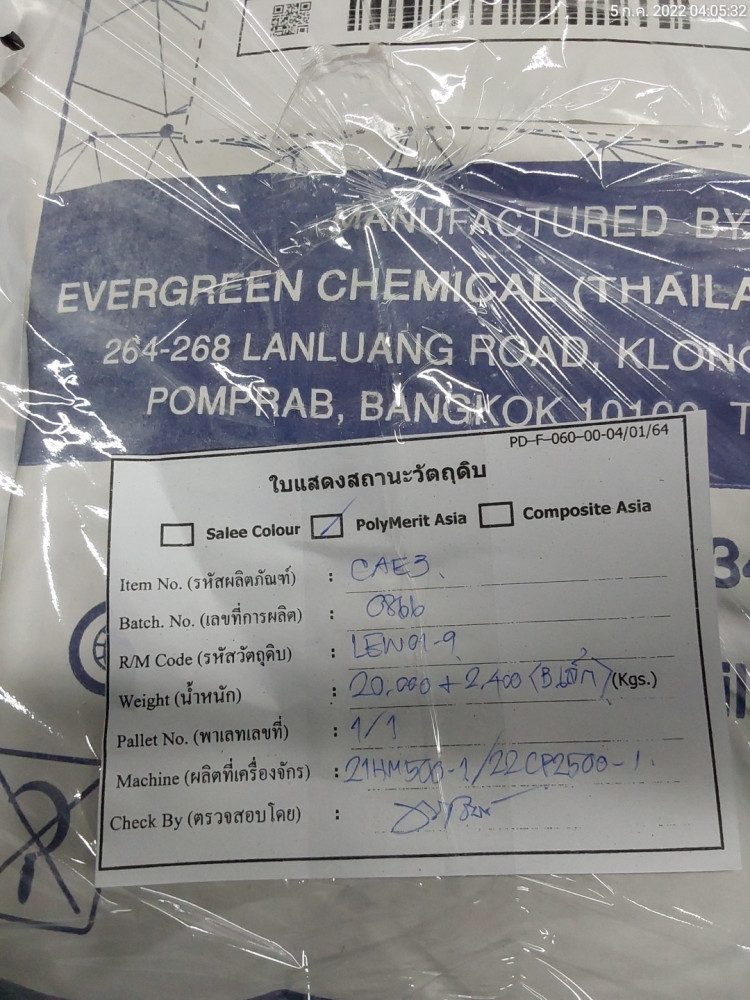 5 ก.ค. 2022 04:05:32
MANUFACTURED BY
EVERGREEN CHEMICAL (THAILA
264-268 LANLUANG ROAD, KLONG
POMPRAB, BANGKOK 10100 T
PD-F-060-00-04/01/64
ใบแสดงสถานะวัตถุดิบ
Salee Colour PolyMerit Asia Composite Asia
Item No. (รหัสผลิตภัณฑ์) : CAE3
Batch. No. (เลขที่การผลิต) : 0866
R/M Code (รหัสวัตถุดิบ) : LEW01-9
Weight (น้ำหนัก) : 20,000 + 2,400 (Kgs.)
Pallet No. (พาเลทเลขที่) : 1/1
Machine (ผลิตที่เครื่องจักร) : 21HM500-1/22CP2500-1
Check By (ตรวจสอบโดย) :